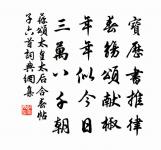 寶歷書推律
春觴頌獻椒
年年似今日
三萬八千朝
蘇頌太皇太后合春帖
子六首詞典網集